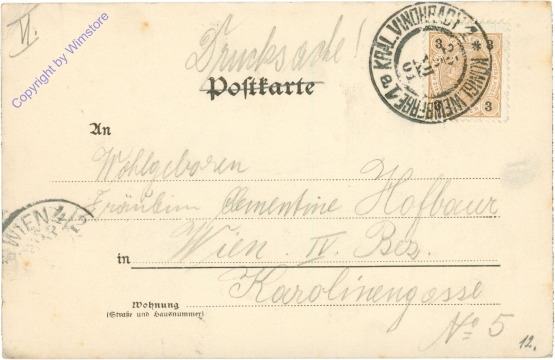 VI.
Copyright by Wimstore
Drucksache!
Postkarte
KRÁL. VINOHRADY 1
KÖNIGL. WEINBERGE 1
3 3
3
An
Wohlgeboren
Fräulein Clementine Hofbauer
WIEN 4/2
in Wien. IV Bez.
Karolinengasse
Wohnung
(Straße und Hausnummer)
No 5
12.